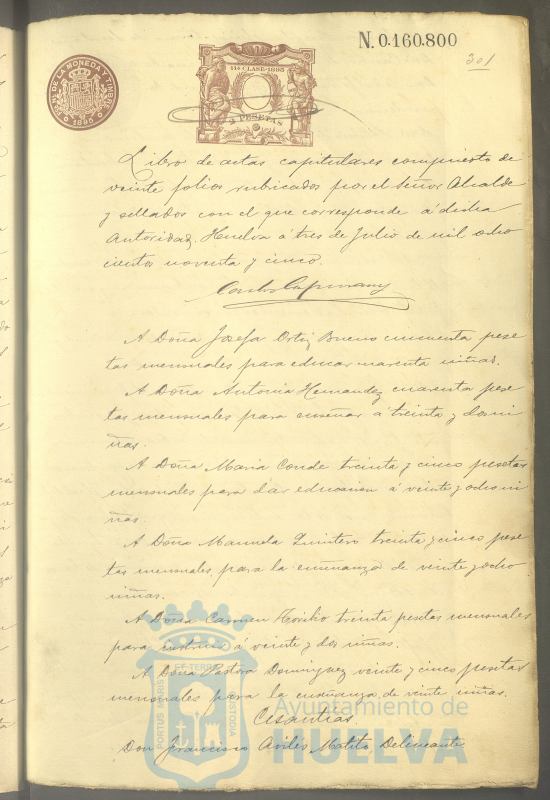 N. 0.160.800
301
DE LA MONEDA Y TIMBRE
1895
11ª CLASE-1895
2 PESETAS
Libro de actas capitulares compuesto de
veinte folios rubricados por el Señor Alcalde
y sellados con el que corresponde á dicha
Autoridad. Huelva á tres de Julio de mil ocho
cientos noventa y cinco.
A Doña Josefa Ortiz Bueno cincuenta pese
tas mensuales para educar cuarenta niñas.
A Doña Antonia Hernandez cuarenta pese
tas mensuales para enseñar á treinta y dos ni
ñas.
A Doña Maria Conde treinta y cinco pesetas
mensuales para dar educacion á veinte y ocho ni
ñas.
A Doña Manuela Quintero treinta y cinco pese
tas mensuales, para la enseñanza de veinte y ocho
niñas.
A Doña Carmen treinta pesetas mensuales
para instruir á veinte y dos niñas.
A Doña Pastora Dominguez veinte y cinco pesetas
mensuales para la enseñanza de veinte niñas.
Cesantias.
Don Francisco Avilés Matito, Delineante
PORTUS MARIS ET TERRE CUSTODIA
Ayuntamiento de
HUELVA